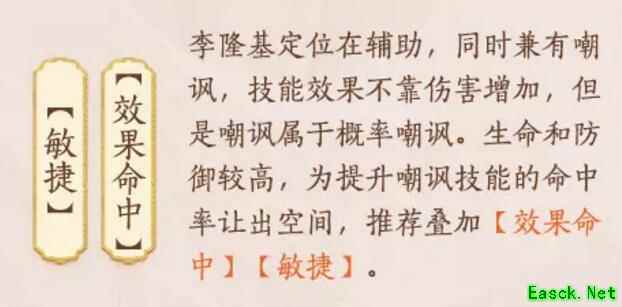 【敏捷】
【效果命中】
李隆基定位在辅助，同时兼有嘲
讽，技能效果不靠伤害增加，但
是嘲讽属于概率嘲讽。生命和防
御较高，为提升嘲讽技能的命中
率让出空间，推荐叠加【效果命
中】【敏捷】。
Easck.Net